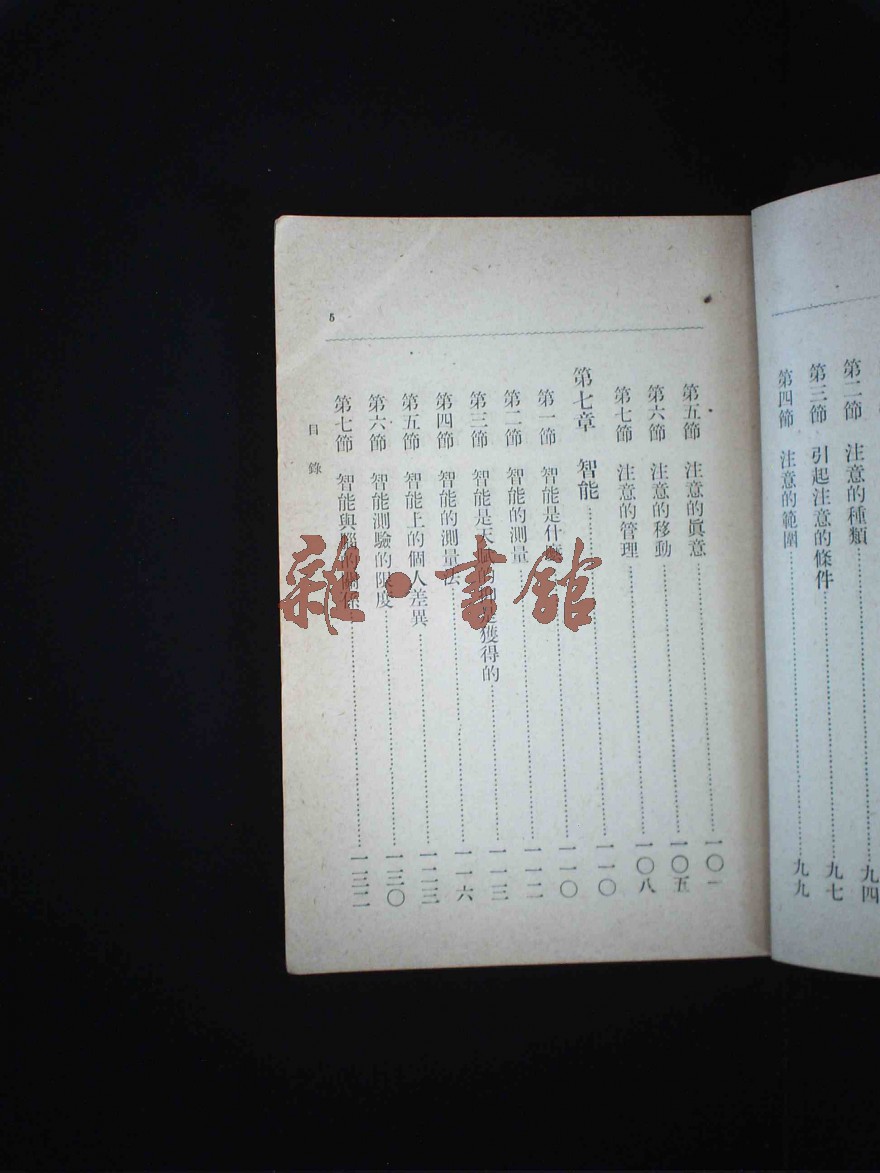 第二節 注意的種類……九四
第三節 引起注意的條件……九七
第四節 注意的範圍……九九
5
第五節 注意的眞意……一〇一
第六節 注意的移動……一〇五
第七節 注意的管理……一〇八
第七章 智能……一一〇
第一節 智能是什麼……一一〇
第二節 智能的測量……一一二
第三節 智能是天賦的抑是獲得的……一一三
第四節 智能的測量法……一一六
第五節 智能上的個人差異……一二三
第六節 智能測驗的限度……一三〇
第七節 智能與腦的關係……一三二
目錄
雜·書館